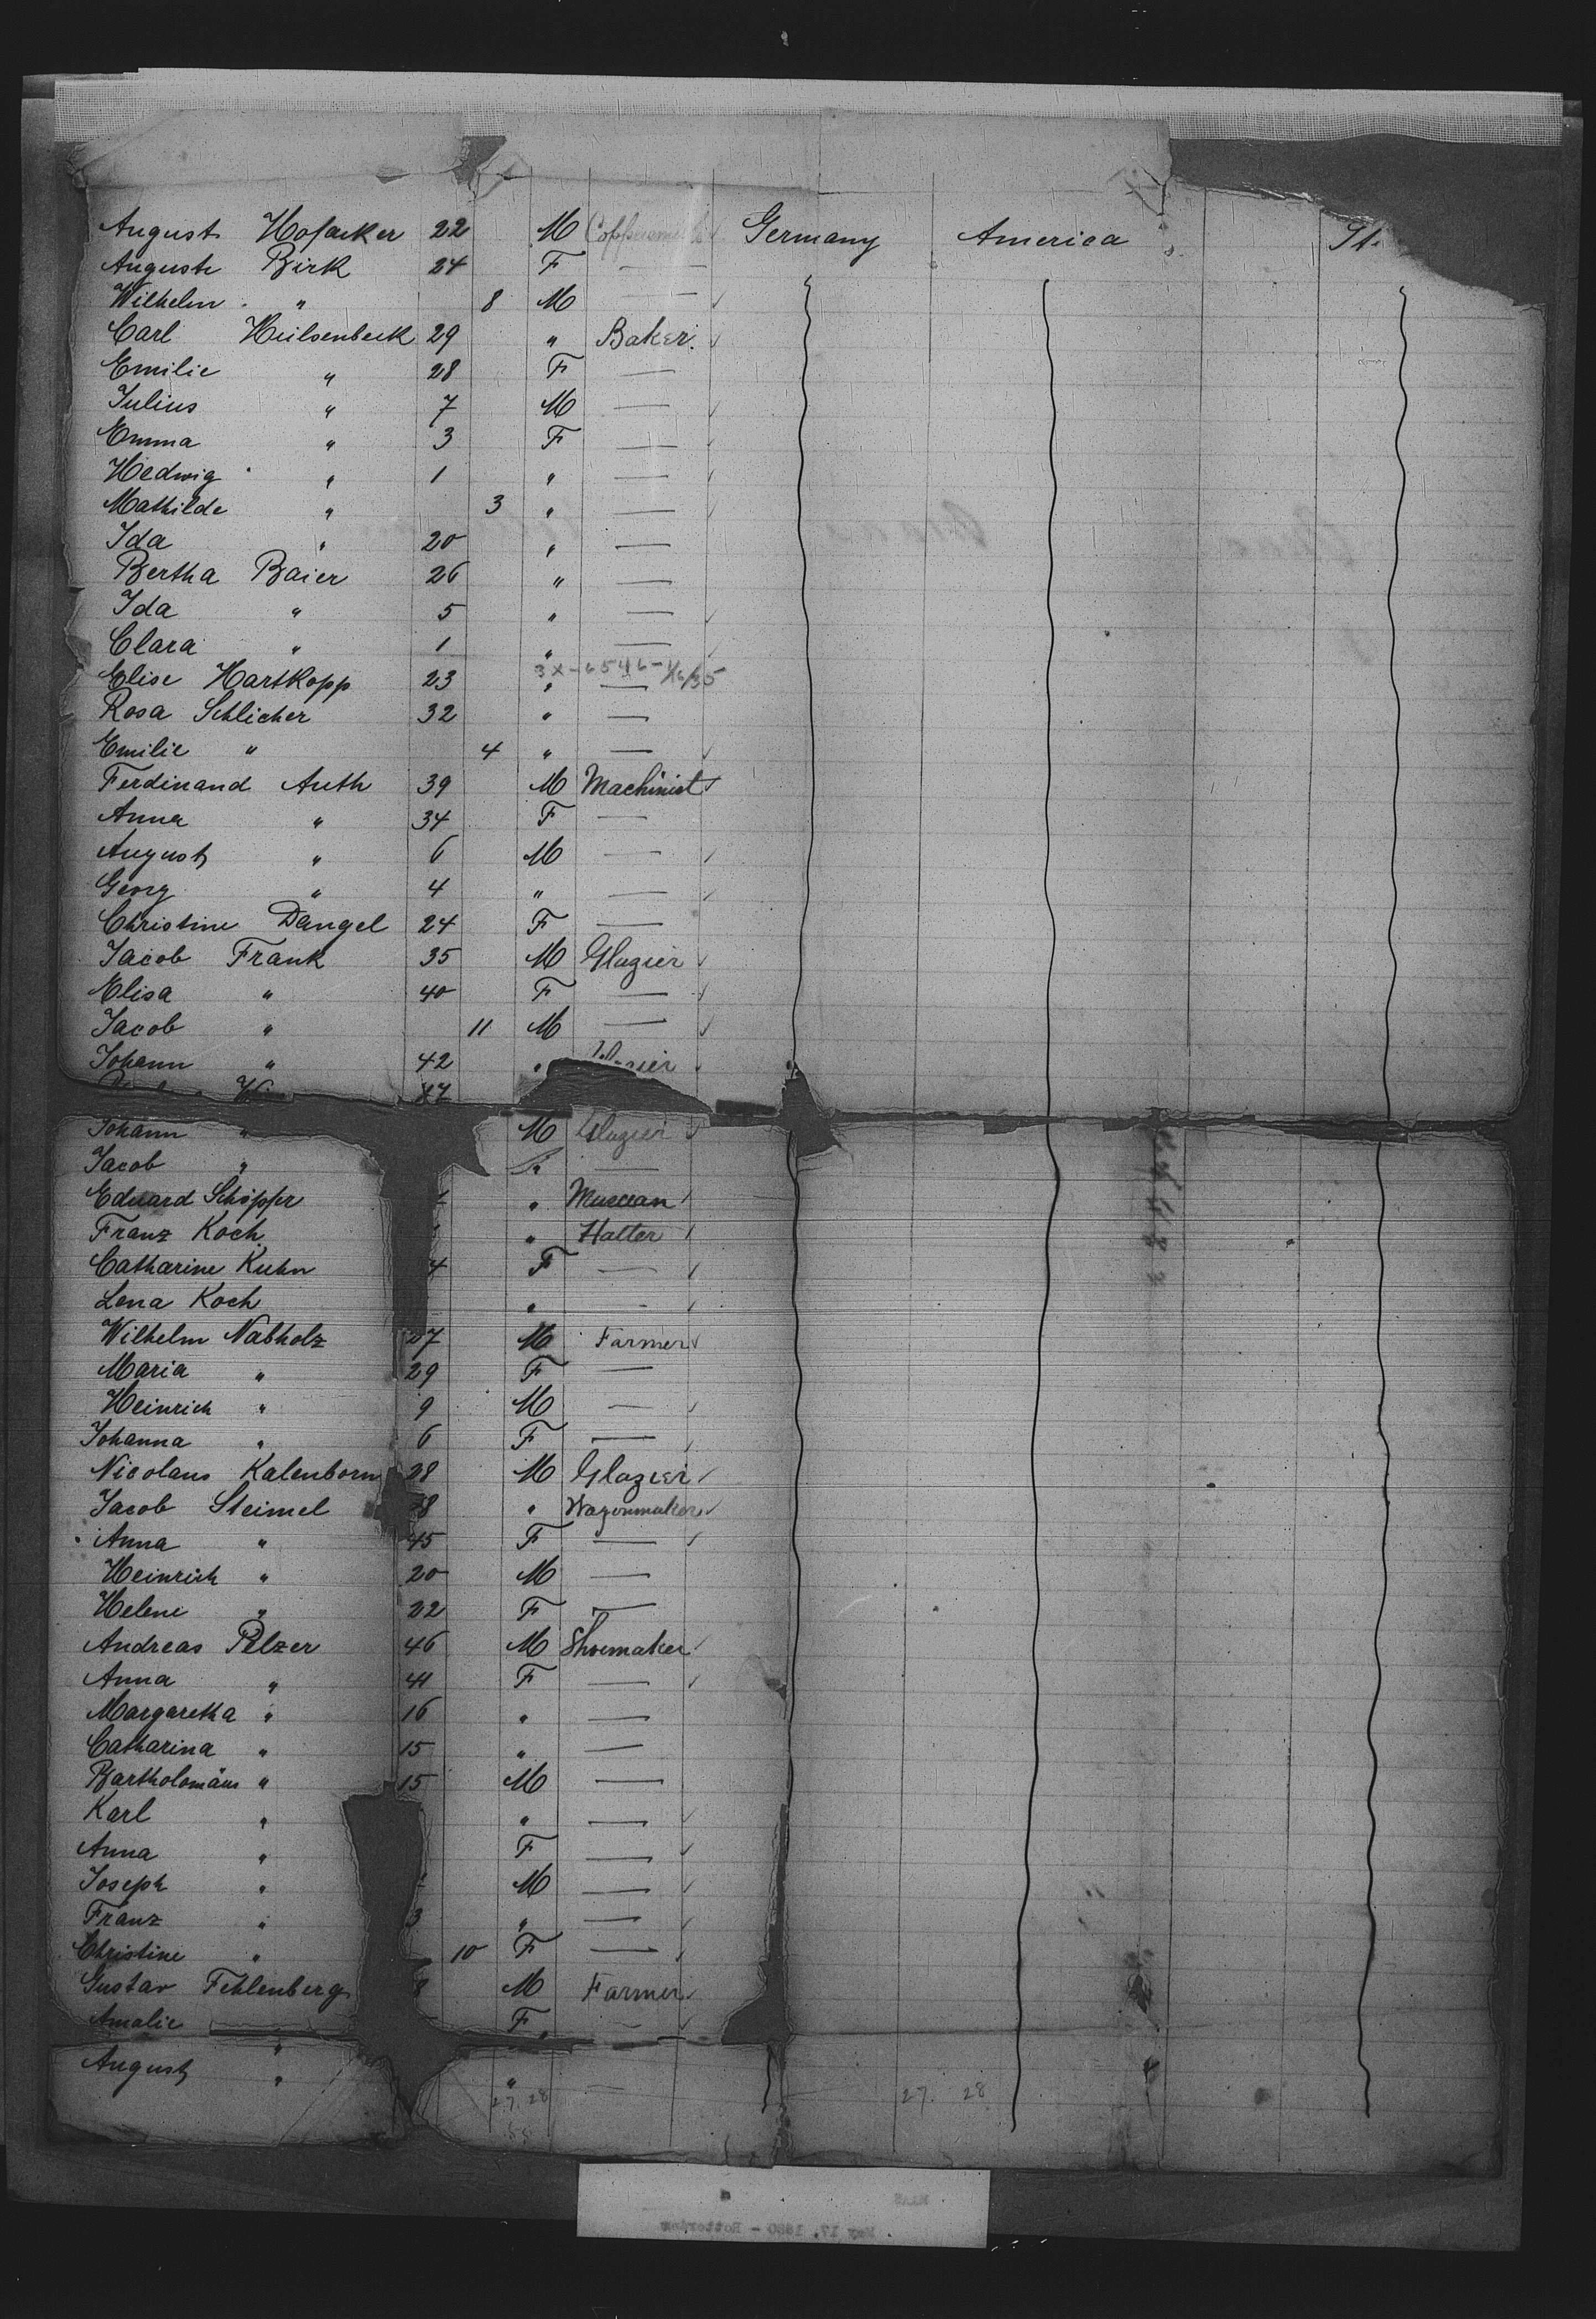 August Hofacker 22 M Coppersmith Germany America St.
Auguste Birk 24 F —
Wilhelm " 8 M — ✓
Carl Hülsenbeck 29 " Baker ✓
Emilie " 28 F —
Julius " 7 M — ✓
Emma " 3 F — ✓
Hedwig " 1 " — ✓
Mathilde " 3 " — ✓
Ida " 20 " —
Bertha Baier 26 " —
Ida " 5 " — ✓
Clara " 1 " — ✓
3x-6546-1/6/35
Elise Hartkopp 23 " —
Rosa Schlicher 32 " —
Emilie " 4 " — ✓
Ferdinand Auth 39 M Machinist ✓
Anna " 34 F —
August " 6 M — ✓
Georg " 4 " — ✓
Christine Dangel 24 F —
Jacob Frank 35 M Glazier ✓
Elisa " 40 F — ✓
Jacob " 11 M — ✓
Johann " 42 "
Johann " M Glazier ✓
Jacob " —
Eduard Schöpper "
Franz Koch " Hatter ✓
Catharine Kuhn 4 F — ✓
Lena Koch " - ✓
Wilhelm Nabholz 27 M Farmer ✓
Maria " 29 F —
Heinrich " 9 M — ✓
Johanna " 6 F — ✓
Nicolaus Kalenborn 28 M Glazier ✓
Jacob Steimel 8 " Wagonmaker ✓
Anna " 45 F — ✓
Heinrich " 20 M —
Helene " 22 F —
Andreas Pelzer 46 M Shoemaker ✓
Anna " 41 F — ✓
Margaretha " 16 " —
Catharina " 15 " —
Bartholomäus " 15 M —
Karl " " — ✓
Anna " F — ✓
Joseph " M — ✓
Franz " 3 " — ✓
Christine " 10 F — ✓
Gustav Fehlenberg 8 M Farmer ✓
Amalie " F — ✓
August " " —
27. 28 27. 28
MAAS
May 17, 1880 - Rotterdam